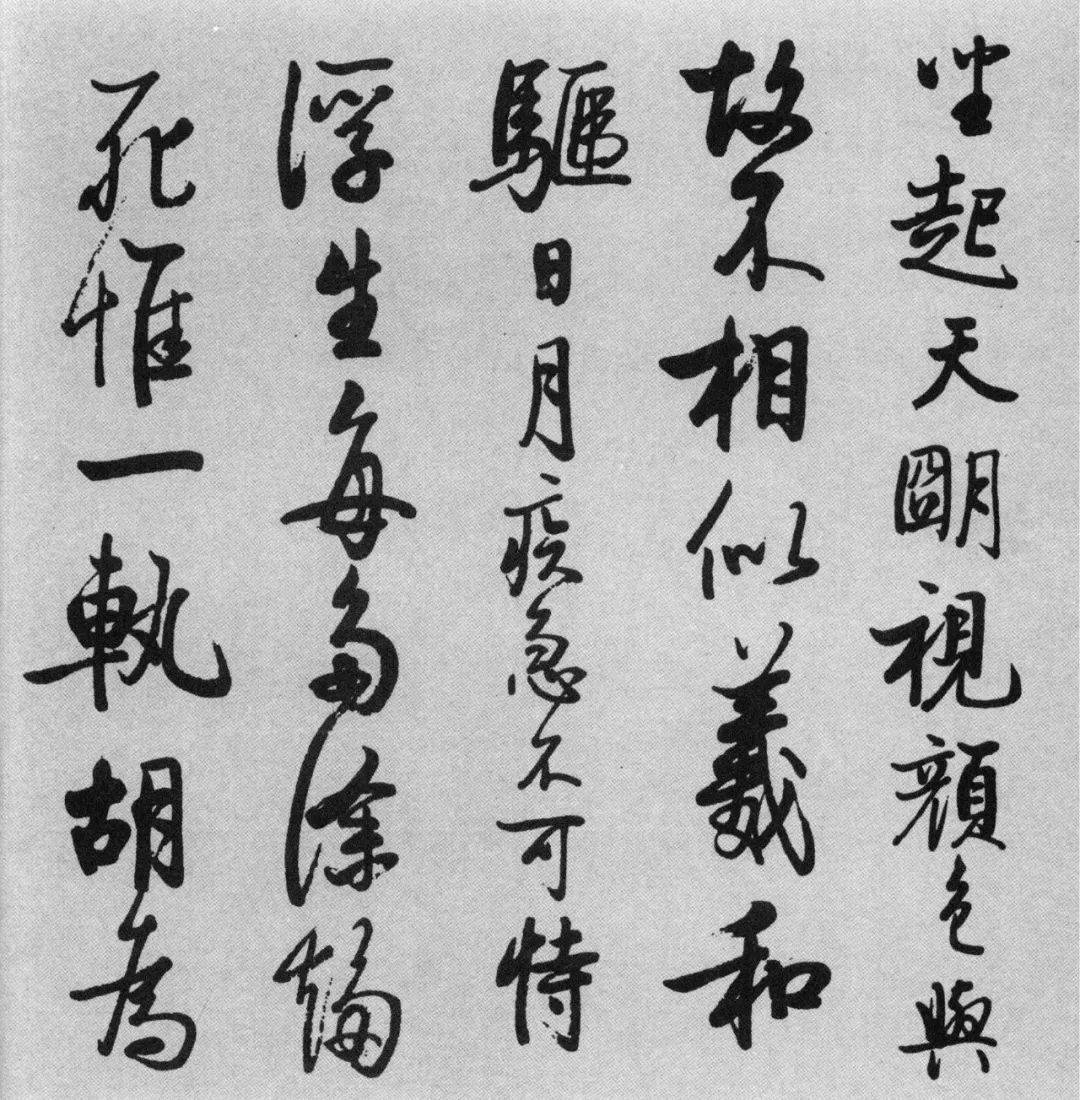 坐起天朙視顏色與
故不相似羲和
驅日月疾急不可恃
浮生每多涂趨
死惟一軌胡為